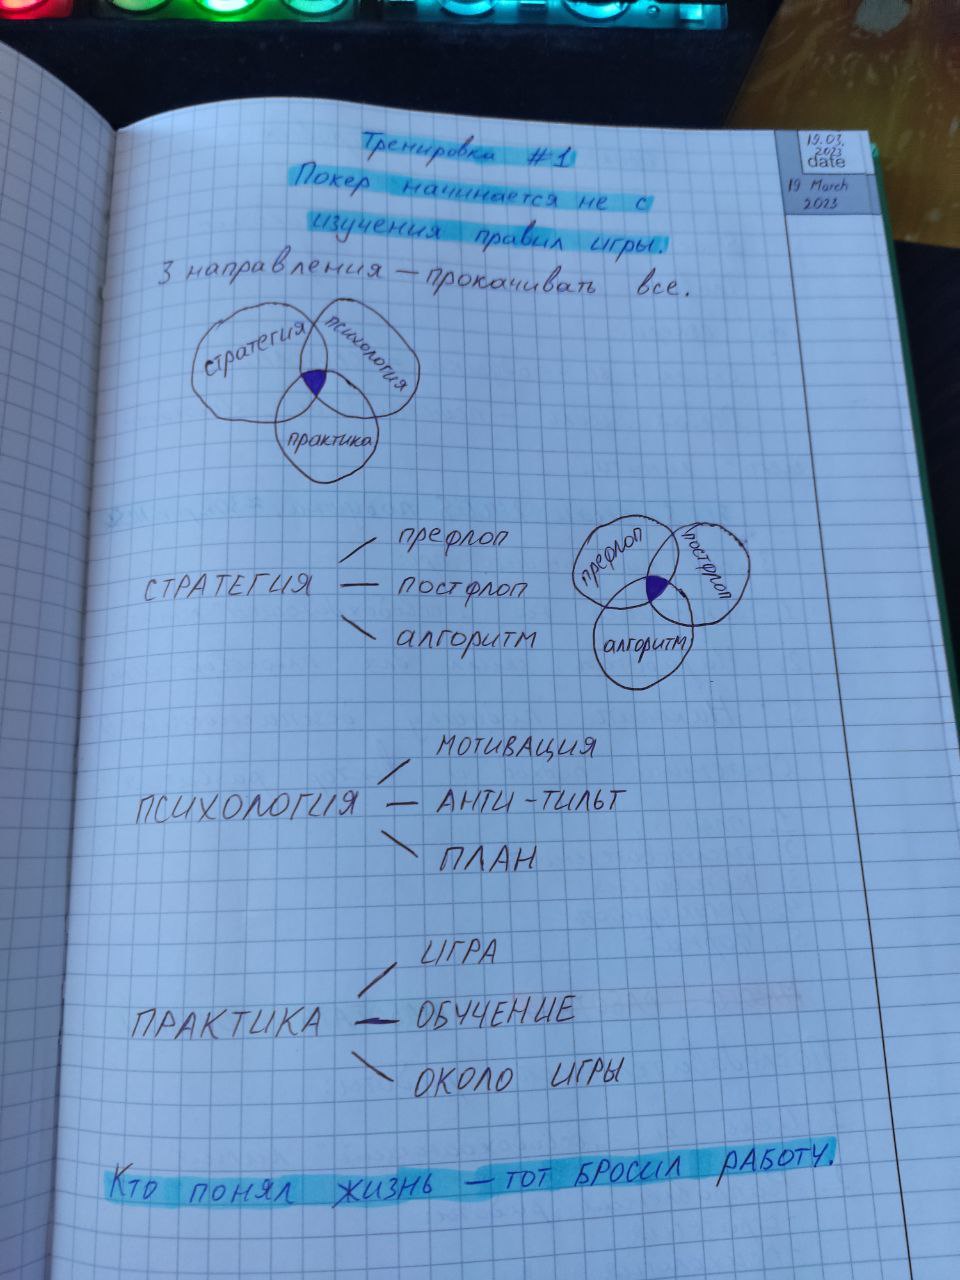 19.03.
2023
date
19 March
2023
Тренировка #1
Покер начинается не с
изучения правил игры.
3 направления — прокачивать все.
стратегия
психология
практика
СТРАТЕГИЯ
префлоп
постфлоп
алгоритм
префлоп
постфлоп
алгоритм
ПСИХОЛОГИЯ
МОТИВАЦИЯ
АНТИ-ТИЛЬТ
ПЛАН
ПРАКТИКА
ИГРА
ОБУЧЕНИЕ
ОКОЛО ИГРЫ
Кто понял жизнь — тот бросил работу.